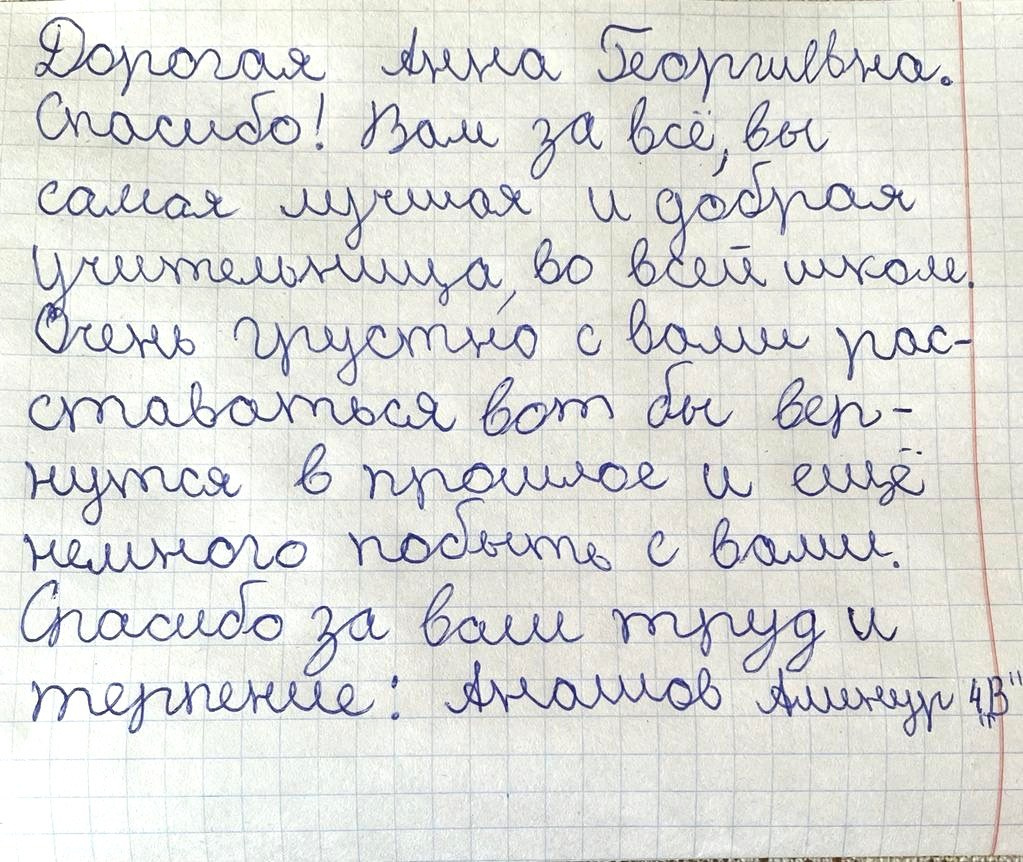 Дорогая Анна Георгиевна.
Спасибо! Вам за всё, вы
самая лучшая и добрая
учительница, во всей школе.
Очень грустно с вами рас-
ставаться вот бы вер-
нутся в прошлое и ещё
немного побыть с вами.
Спасибо за ваш труд и
терпение: Анашов Алинур 4"В"